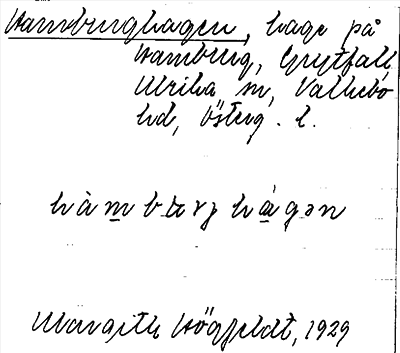 Hamburghagen, hage på
Hamburg, Grytfall,
Ulrika sn, Vallebo
hd, Österg. l.
hàmbωrj hágən
Margith Högfeldt, 1929